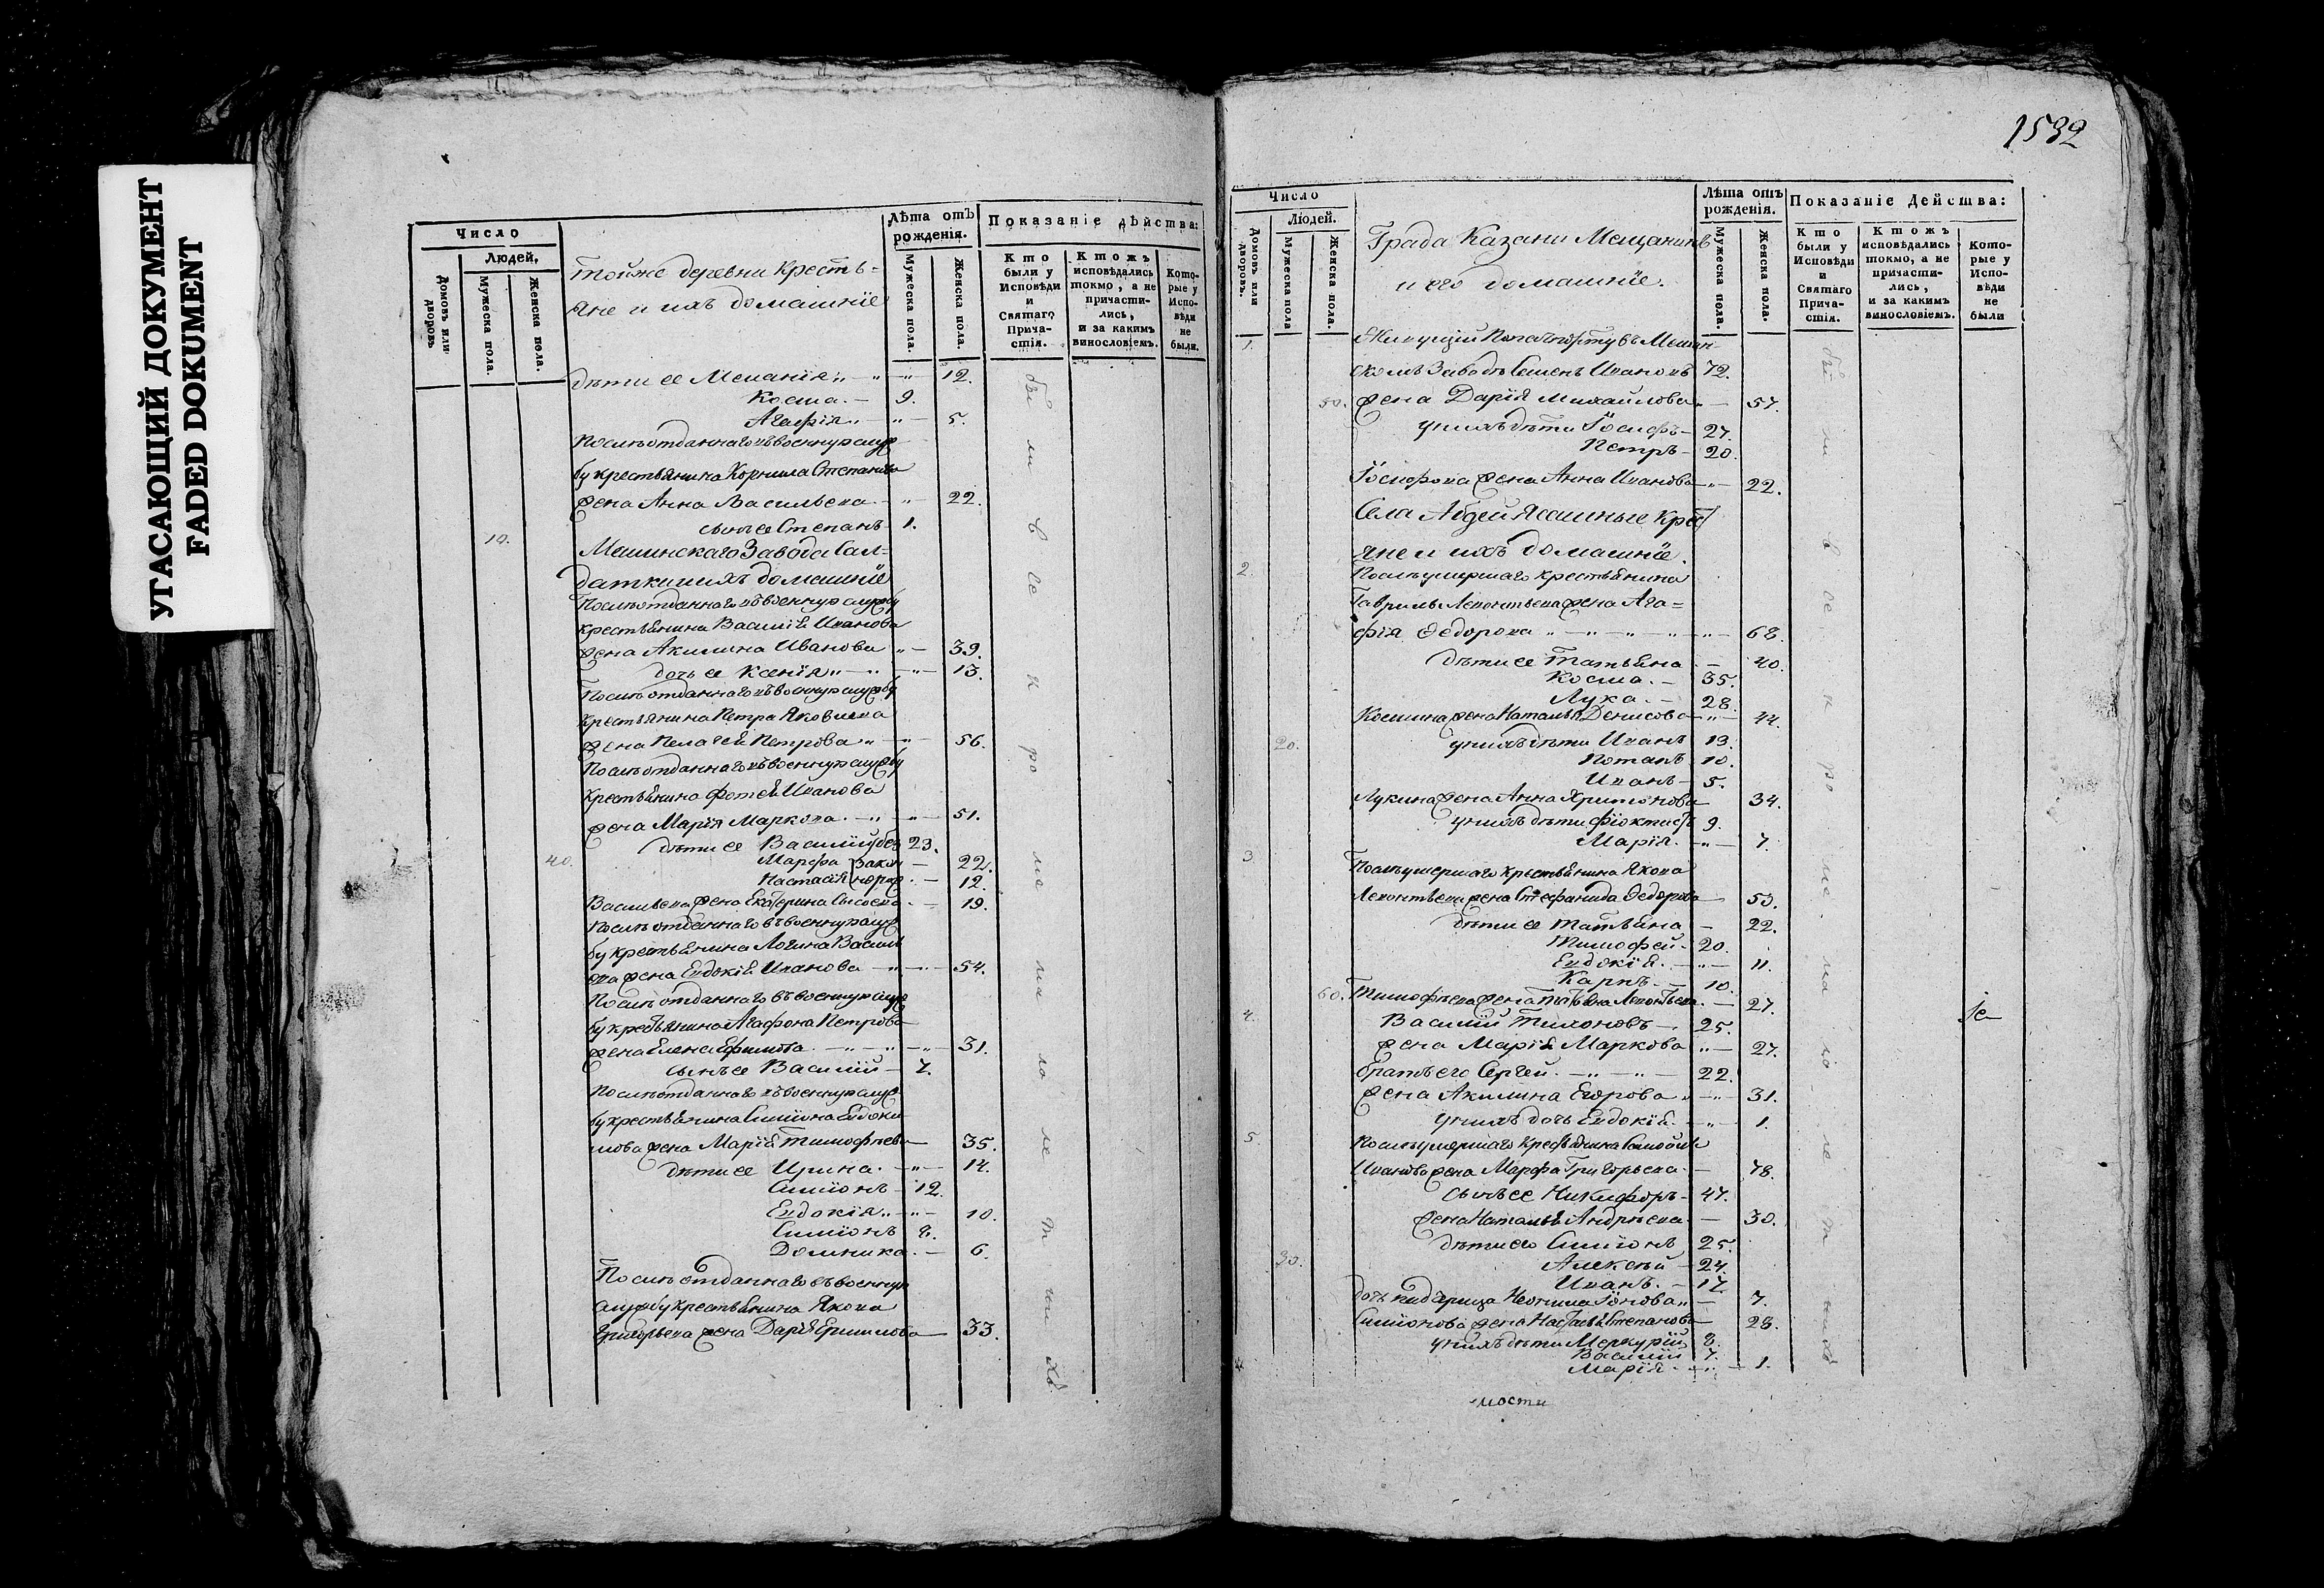 УГАСАЮЩИЙ ДОКУМЕНТ
FADED DOKUMENT
Число
Людей,
Домовъ или дворовъ
Мужеска пола.
Женска пола.
Тойже деревни Кресть=
яне и ихъ домашніе
Лѣта отъ рожденія.
Мужеска пола.
Женска пола.
Показаніе дѣйства:
Кто были у Исповѣди и Святаго Причастія.
Ктожъ исповѣдались токмо, а не причастились, и за какимъ винословіемъ.
Которые у Исповѣди не были.
дѣти ее Меланія 12.
Косма 9.
Агафія 5.
После отданнаго въ военную служ
бу крестьянина Корнила Степанова
жена Анна Васильева 22.
сынъ ее Степанъ 1.
10.
Мешинскаго Завода Сал=
датки и ихъ домашніе
После отданнаго въ военную службу
крестьянина Василія Иванова
жена Акилина Иванова 39.
дочь ее Ксенія 13.
После отданнаго въ военную службу
крестьянина Петра Яковлева
жена Пелагея Петрова 56.
После отданнаго въ военную службу
крестьянина Фотея Иванова
жена Марія Маркова 51.
дѣти ее Василій 23.
40. Марфа 22.
Настасія 12.
Васильева жена Екатерина Сысоева 19.
После отданнаго въ военную служ
бу крестьянина Логина Василь
ева жена Евдокія Иванова 54.
После отданнаго въ военную служ
бу крестьянина Агафона Петрова
жена Елена Ефимова 31.
сынъ ее Василій 7.
После отданнаго въ военную служ
бу крестьянина Симиона Евдоки
мова жена Марія Тимофеева 35.
дѣти ее Ирина 14.
Симионъ 12.
Евдокія 10.
Симионъ 8.
Домника 6.
После отданнаго въ военную
службу крестьянина Якова
Григорьева жена Дарія Ермилова 33.
1532
Число
Людей.
Домовъ или дворовъ.
Мужеска пола
Женска пола.
Града Казани Мещанинъ
и его домашніе.
Лѣта отъ рожденія.
Мужеска пола.
Женска пола.
Показаніе Дейсшва:
Кто были у Исповѣди и Святаго Причастія.
Ктожъ исповѣдались токмо, а не причастились, и за какимъ винословіемъ.
Которые у Исповѣди не были
1. Живущій по пашпорту въ Мешин
скомъ Заводѣ Семенъ Ивановъ 72.
50. жена Дарія Михайлова 57.
у нихъ дѣти Іосифъ 27.
Петръ 20.
Іосифова жена Анна Иванова 22.
яне и ихъ домашніе.
2. После умершаго крестьянина
Гаврилы Леонтьева жена Ага=
фія Федорова 68.
дѣти ее Татьяна 40.
Косма 35.
Лука 28.
Космина жена Наталья Денисова 44.
20. у нихъ дѣти Иванъ 13.
Потапъ 10.
Иванъ 5.
Лукина жена Анна Харитонова 34.
у нихъ дѣти Фіоктистъ 9.
Марія 7.
3 После умершаго крестьянина Якова
Леонтьева жена Стефанида Федорова 53.
дѣти ее Татьяна 22.
Тимофей 20.
Евдокія 11.
Карпъ 10.
60. Тимофеева жена Татьяна Леонтьева 27.
4. Василій Тихоновъ 25.
жена Марія Маркова 27.
братъ его Сергей 22.
жена Акилина Егорова 31.
у нихъ дочь Евдокія 1.
5. После умершаго крестьянина Самойлы
Иванова жена Марфа Григорьева 78.
сынъ ее Никифоръ 47.
жена Наталья Андреева 30.
дѣти его Симионъ 25.
30. Алексѣй 24.
Иванъ 17.
Симионова жена Настасья Степанова 28.
у нихъ дѣти Меркурій 8.
Василій 7.
Марія 1.
мости